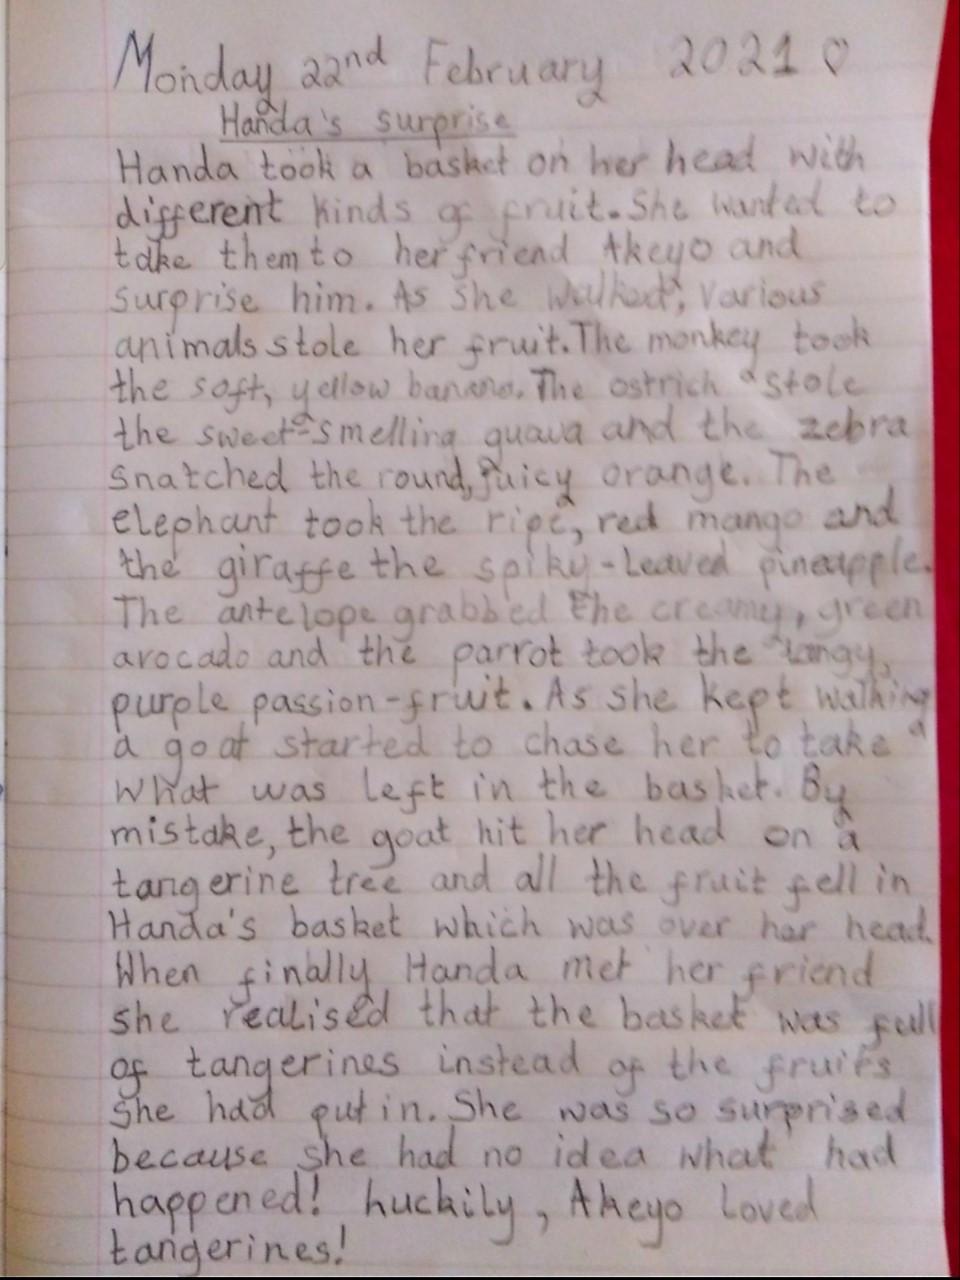 Monday 22nd February 2021 ♡
Handa's surprise
Handa took a basket on her head with
different kinds of fruit. She wanted to
take them to her friend Akeyo and
surprise him. As she walked, various
animals stole her fruit. The monkey took
the soft, yellow banana. The ostrich stole
the sweet-smelling guava and the zebra
snatched the round, juicy orange. The
elephant took the ripe, red mango and
the giraffe the spiky-leaved pineapple.
The antelope grabbed the creamy, green
avocado and the parrot took the tangy,
purple passion-fruit. As she kept walking
a goat started to chase her to take
what was left in the basket. By
mistake, the goat hit her head on a
tangerine tree and all the fruit fell in
Handa's basket which was over her head.
When finally Handa met her friend
she realised that the basket was full
of tangerines instead of the fruits
she had put in. She was so surprised
because she had no idea what had
happened! Luckily, Akeyo loved
tangerines!